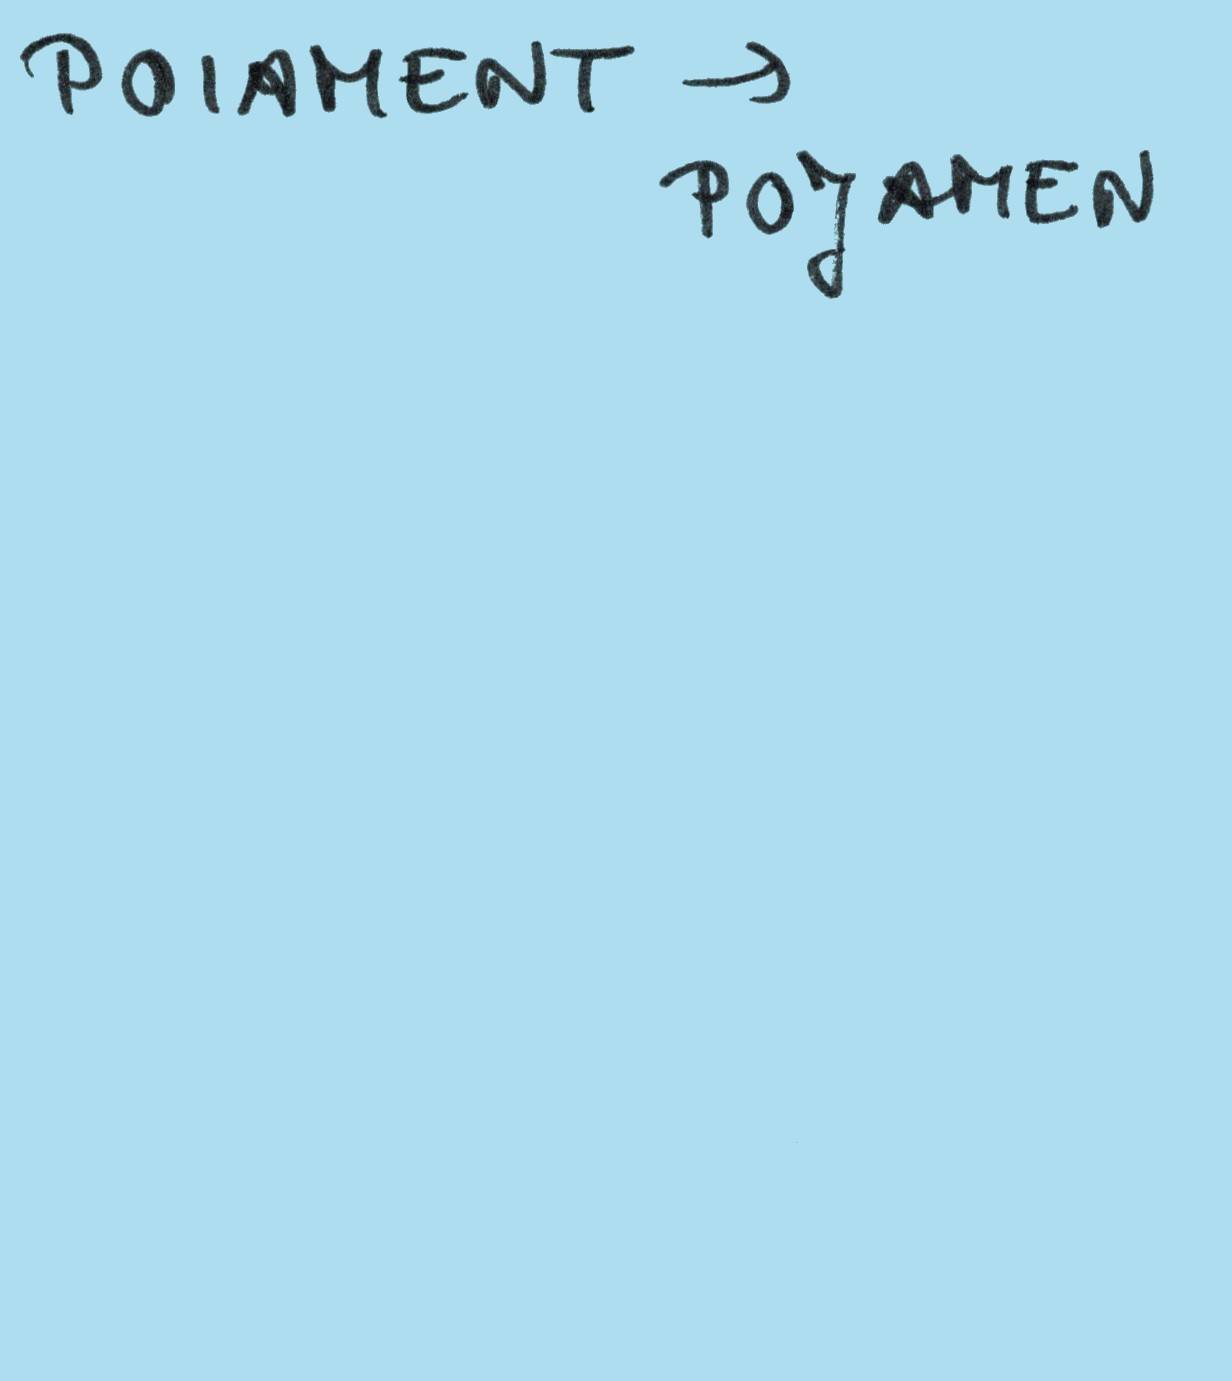 POIAMENT →
POYAMEN